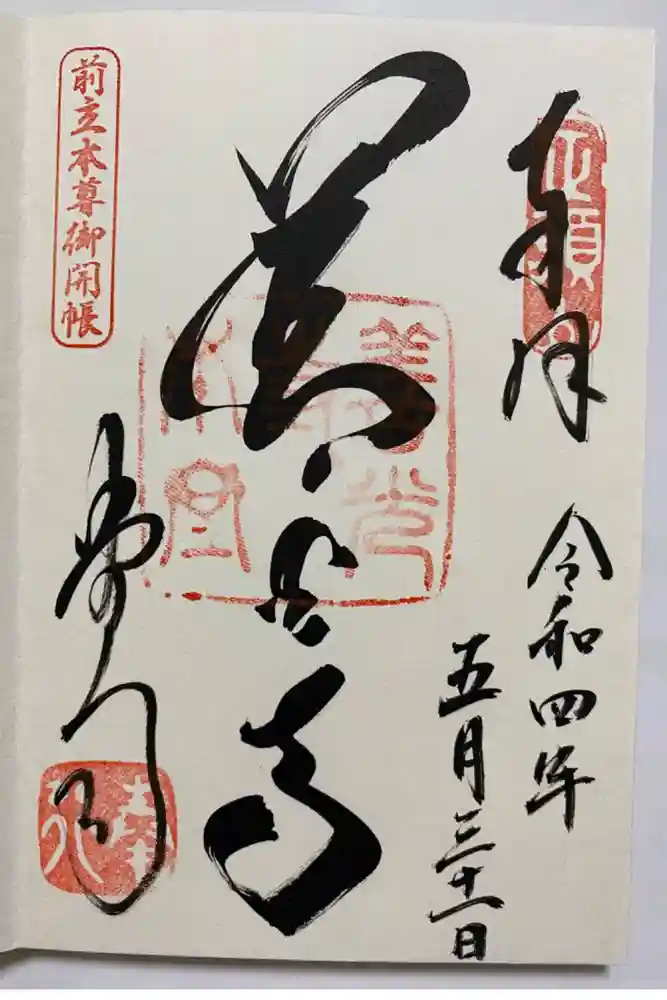 奉拝
令和四年
五月三十一日
善光寺
前立本尊御開帳